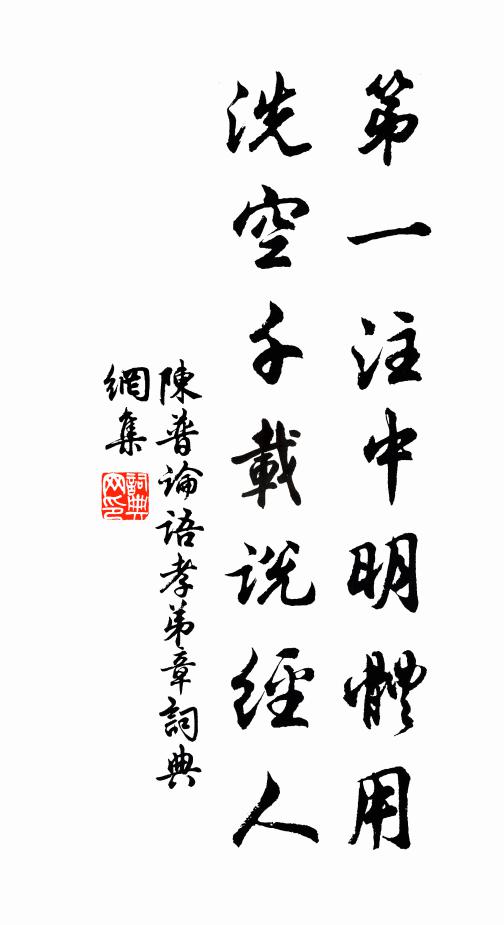 第一注中明體用
洗空千載說經人
陳普論語孝弟章詞典
網集
詞典
网印